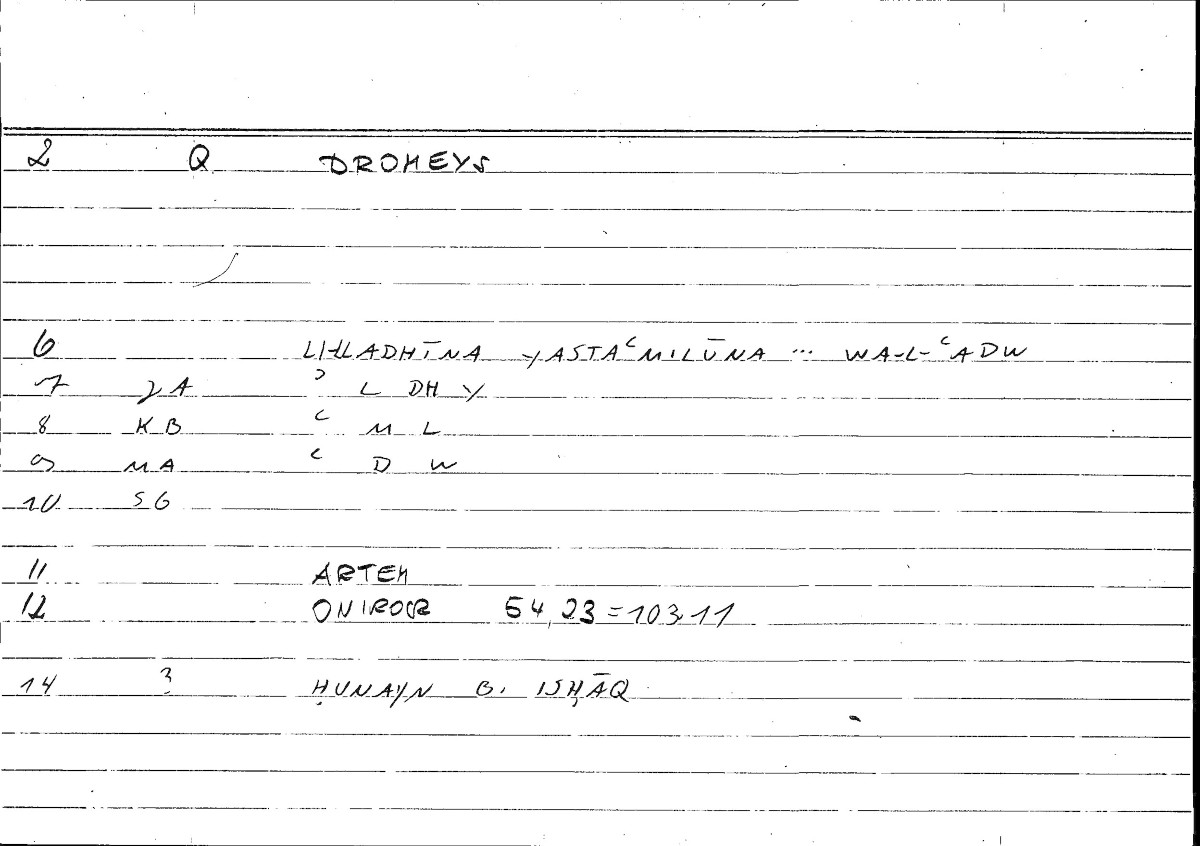 2 Q DROMEYS
6 LI-LLADHĪNA YASTAʿMILŪNA ... WA-L-ʿADW
7 JA ʾ L DH Y
8 KB ʿ M L
9 MA ʿ D W
10 SG
11 ARTEM
12 ONIROCR 54,23=103,11
14 3 ḤUNAYN B. ISḤĀQ